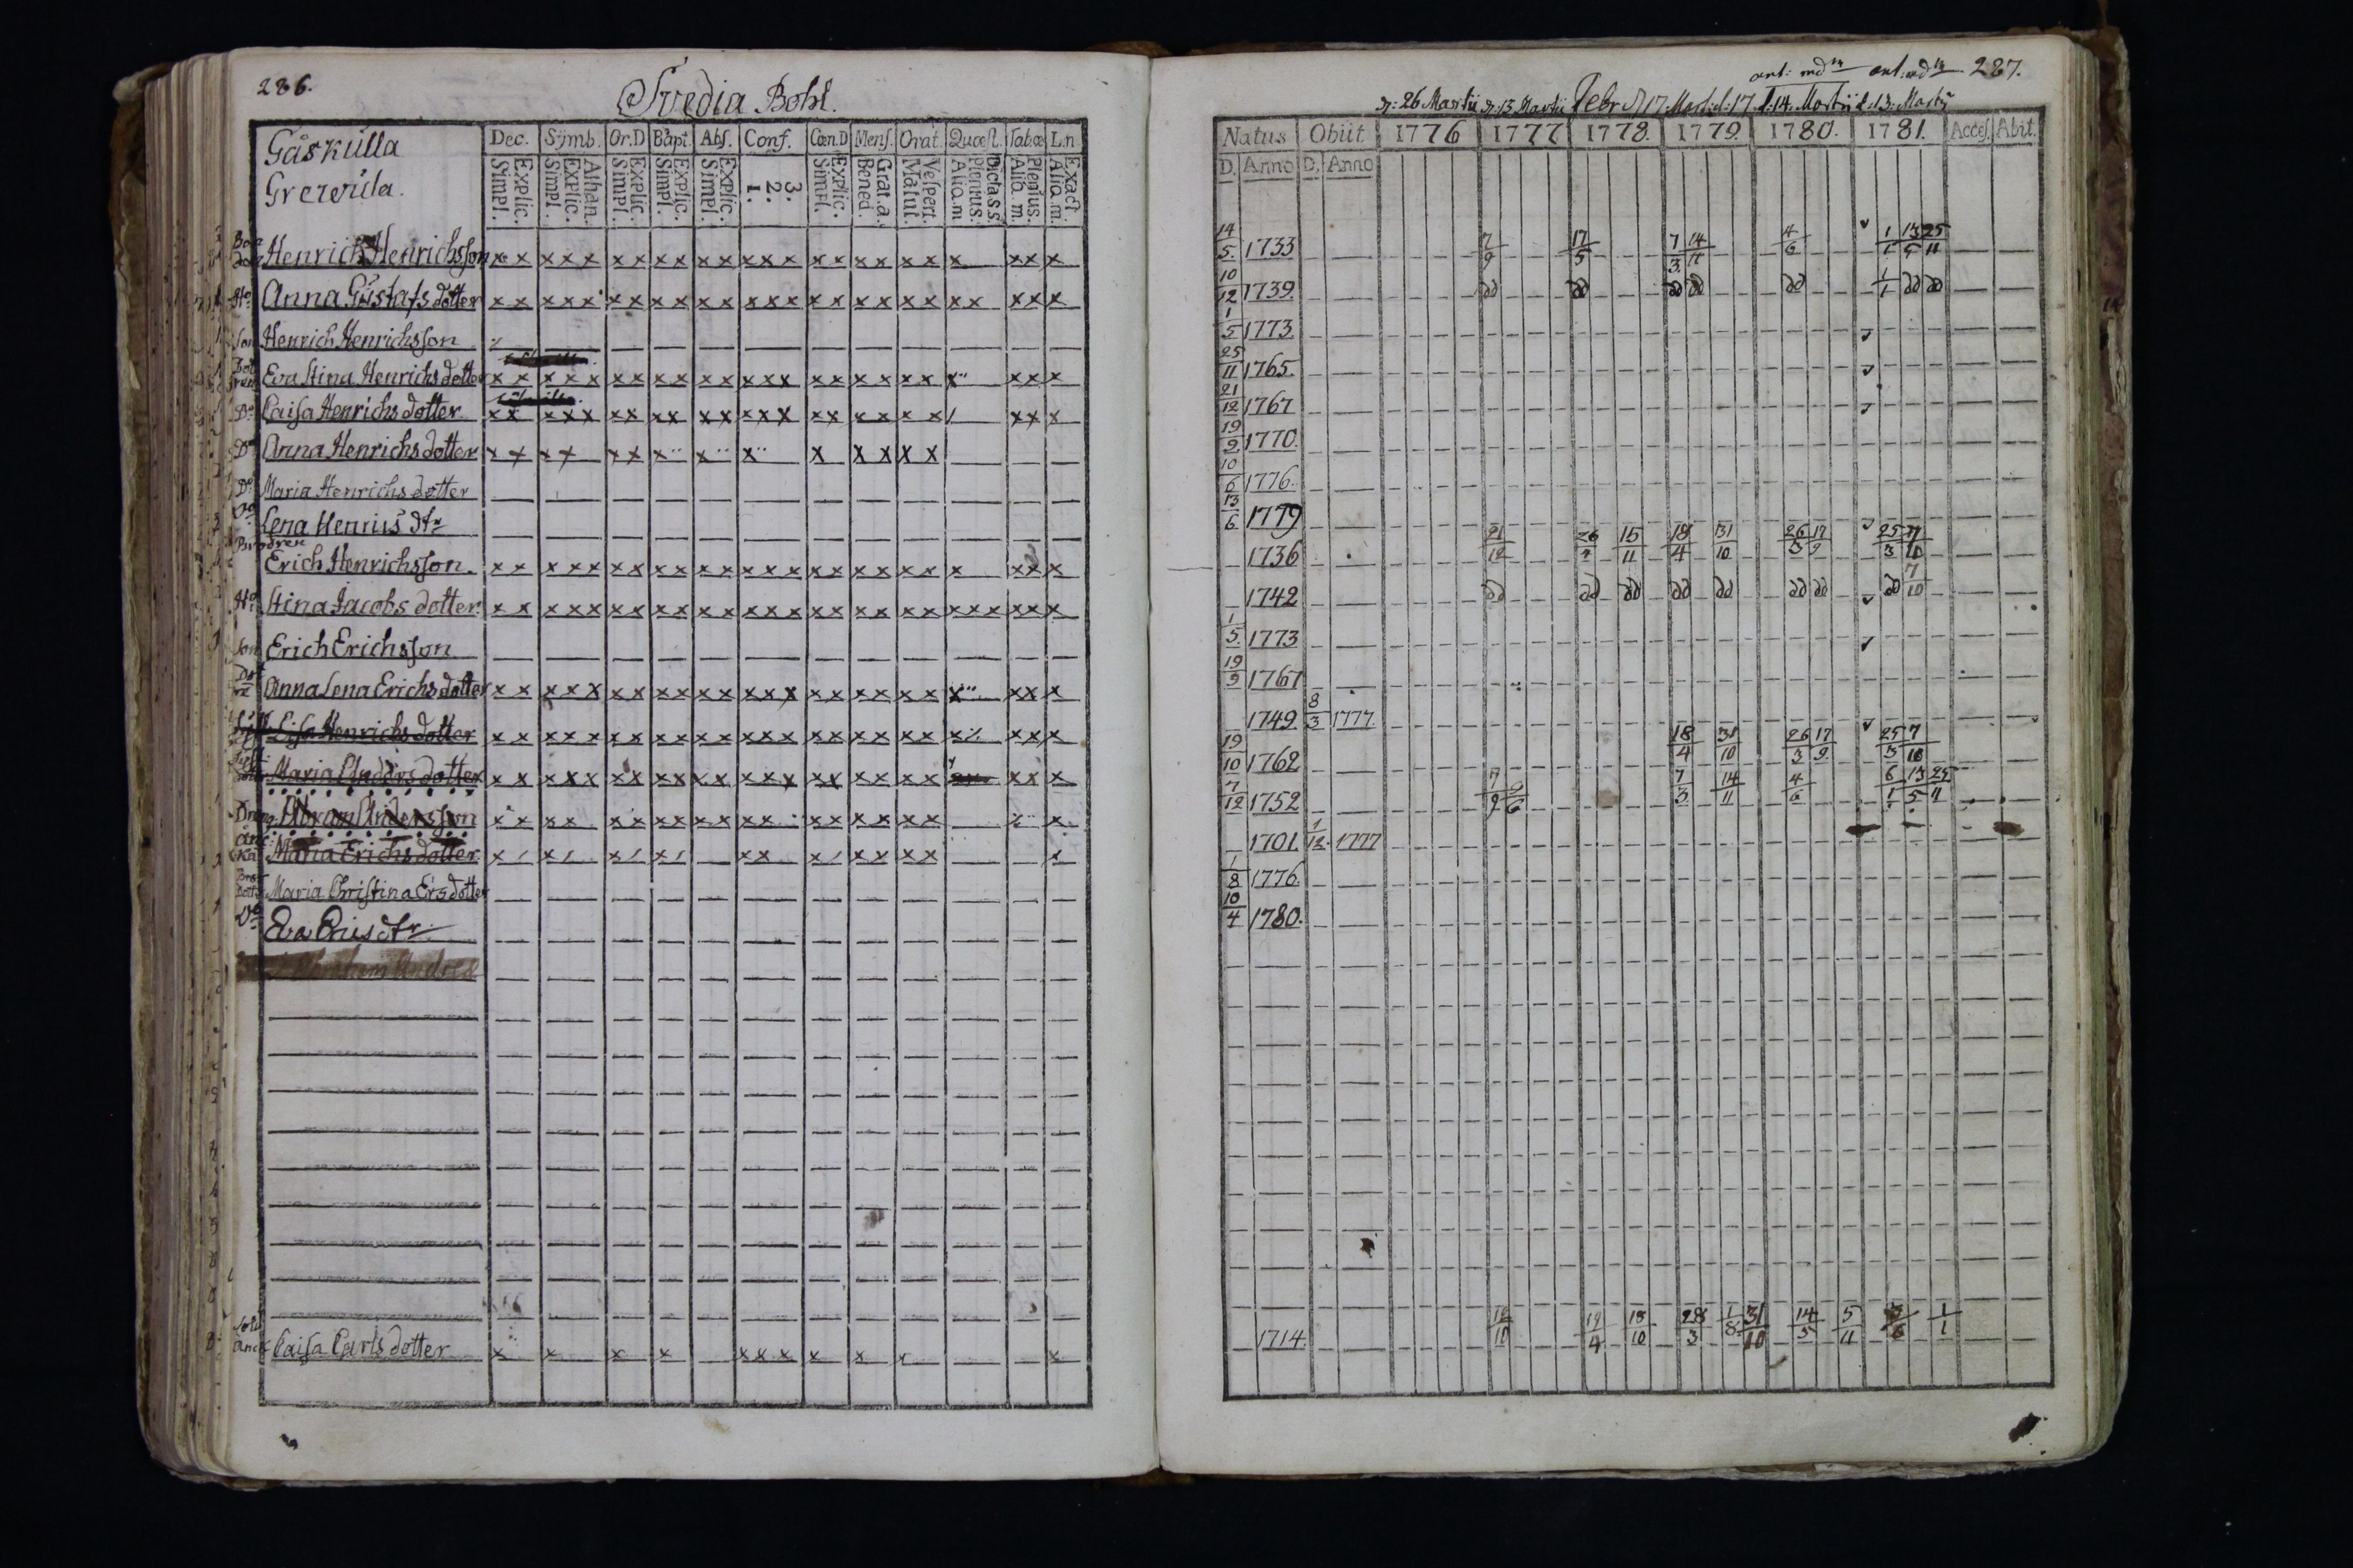 286.
Svedia Bohl.
Gåskulla
Grervila.
Dec. Symb. Or.D Bapt. Abs. Conf. Cœn.D Mens. Orat. Quæst. Tab.œ L.n
Simpl. Explic. Simpl. Explic. Athan. Simpl. Explic. Simpl. Explic. Simpl. Explic. 1. 2. 3. Simpl. Explic. Bened. Grat.a. Matut. Vespert. Aliq.m Plenius. Dicta s.s. Aliq.m. Plenius. Aliq.m. Exact.
Henrich Henrichsson
Ho Anna Gustafs dotter
Son Henrich Henrichsson
Eva Stina Henrichs dotter
Do Caisa Henrichs dotter
Do Anna Henrichs dotter
Do Maria Henrichs dotter
Do Lena Henrics dtr
Brodren
Erich Henrichsson
Ho Stina Jacobs dotter
Son Erich Erichsson
Anna Lena Erichs dotter
Lisa Henrichs dotter
Maria Anders dotter
Dräng Abram Andersson
Maria Erichs dotter
Maria Christina Ersdotter
Do Eva Ericsdtr
Caisa Carls dotter
287.
d: 26 Martii d: 13 Martii Febr d 17. Mart: d: 17 d: 14. Martii d: 13: Martii
Natus Obiit 1776 1777 1778. 1779. 1780. 1781. Acces. Abit.
D. Anno D. Anno
14/5. 1733 7/9 17/5 7/3 14/11 4/6 1/1 13/5 25/11
10/12 1739. dd dd dd dd dd 1/1 dd dd
1/5 1773.
25/11 1765.
21/12 1767
19/2 1770.
10/6 1776.
13/6 1779
1736 21/12 15/11 18/4 31/10 26/3 17/9 25/3 7/10
1742 dd dd dd dd dd dd dd dd 7/10
1/5 1773
19/9 1767
1749. 8/3 1777.
19/10 1762 18/4 31/10 26/3 17/9. 25/3 7/10
7/12 1752 7/9 7/3 14/11 4/6 6/1 13/5 25/11
1701. 1/12. 1777
1/8 1776.
10/4 1780.
1714. 12/10 19/4 18/10 28/3 1/8 31/10 14/5 5/11 1/1